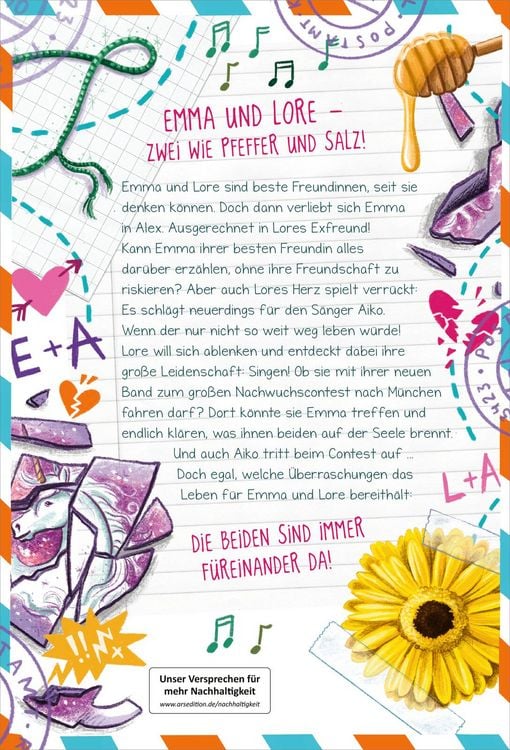 EMMA UND LORE –
ZWEI WIE PFEFFER UND SALZ!
Emma und Lore sind beste Freundinnen, seit sie
denken können. Doch dann verliebt sich Emma
in Alex. Ausgerechnet in Lores Exfreund!
Kann Emma ihrer besten Freundin alles
darüber erzählen, ohne ihre Freundschaft zu
riskieren? Aber auch Lores Herz spielt verrückt:
Es schlägt neuerdings für den Sänger Aiko.
Wenn der nur nicht so weit weg leben würde!
Lore will sich ablenken und entdeckt dabei ihre
große Leidenschaft: Singen! Ob sie mit ihrer neuen
Band zum großen Nachwuchscontest nach München
fahren darf? Dort könnte sie Emma treffen und
endlich klären, was ihnen beiden auf der Seele brennt.
Und auch Aiko tritt beim Contest auf ...
Doch egal, welche Überraschungen das
Leben für Emma und Lore bereithält:
DIE BEIDEN SIND IMMER
FÜREINANDER DA!
E+A
L+A
!!
Unser Versprechen für
mehr Nachhaltigkeit
www.arsedition.de/nachhaltigkeit